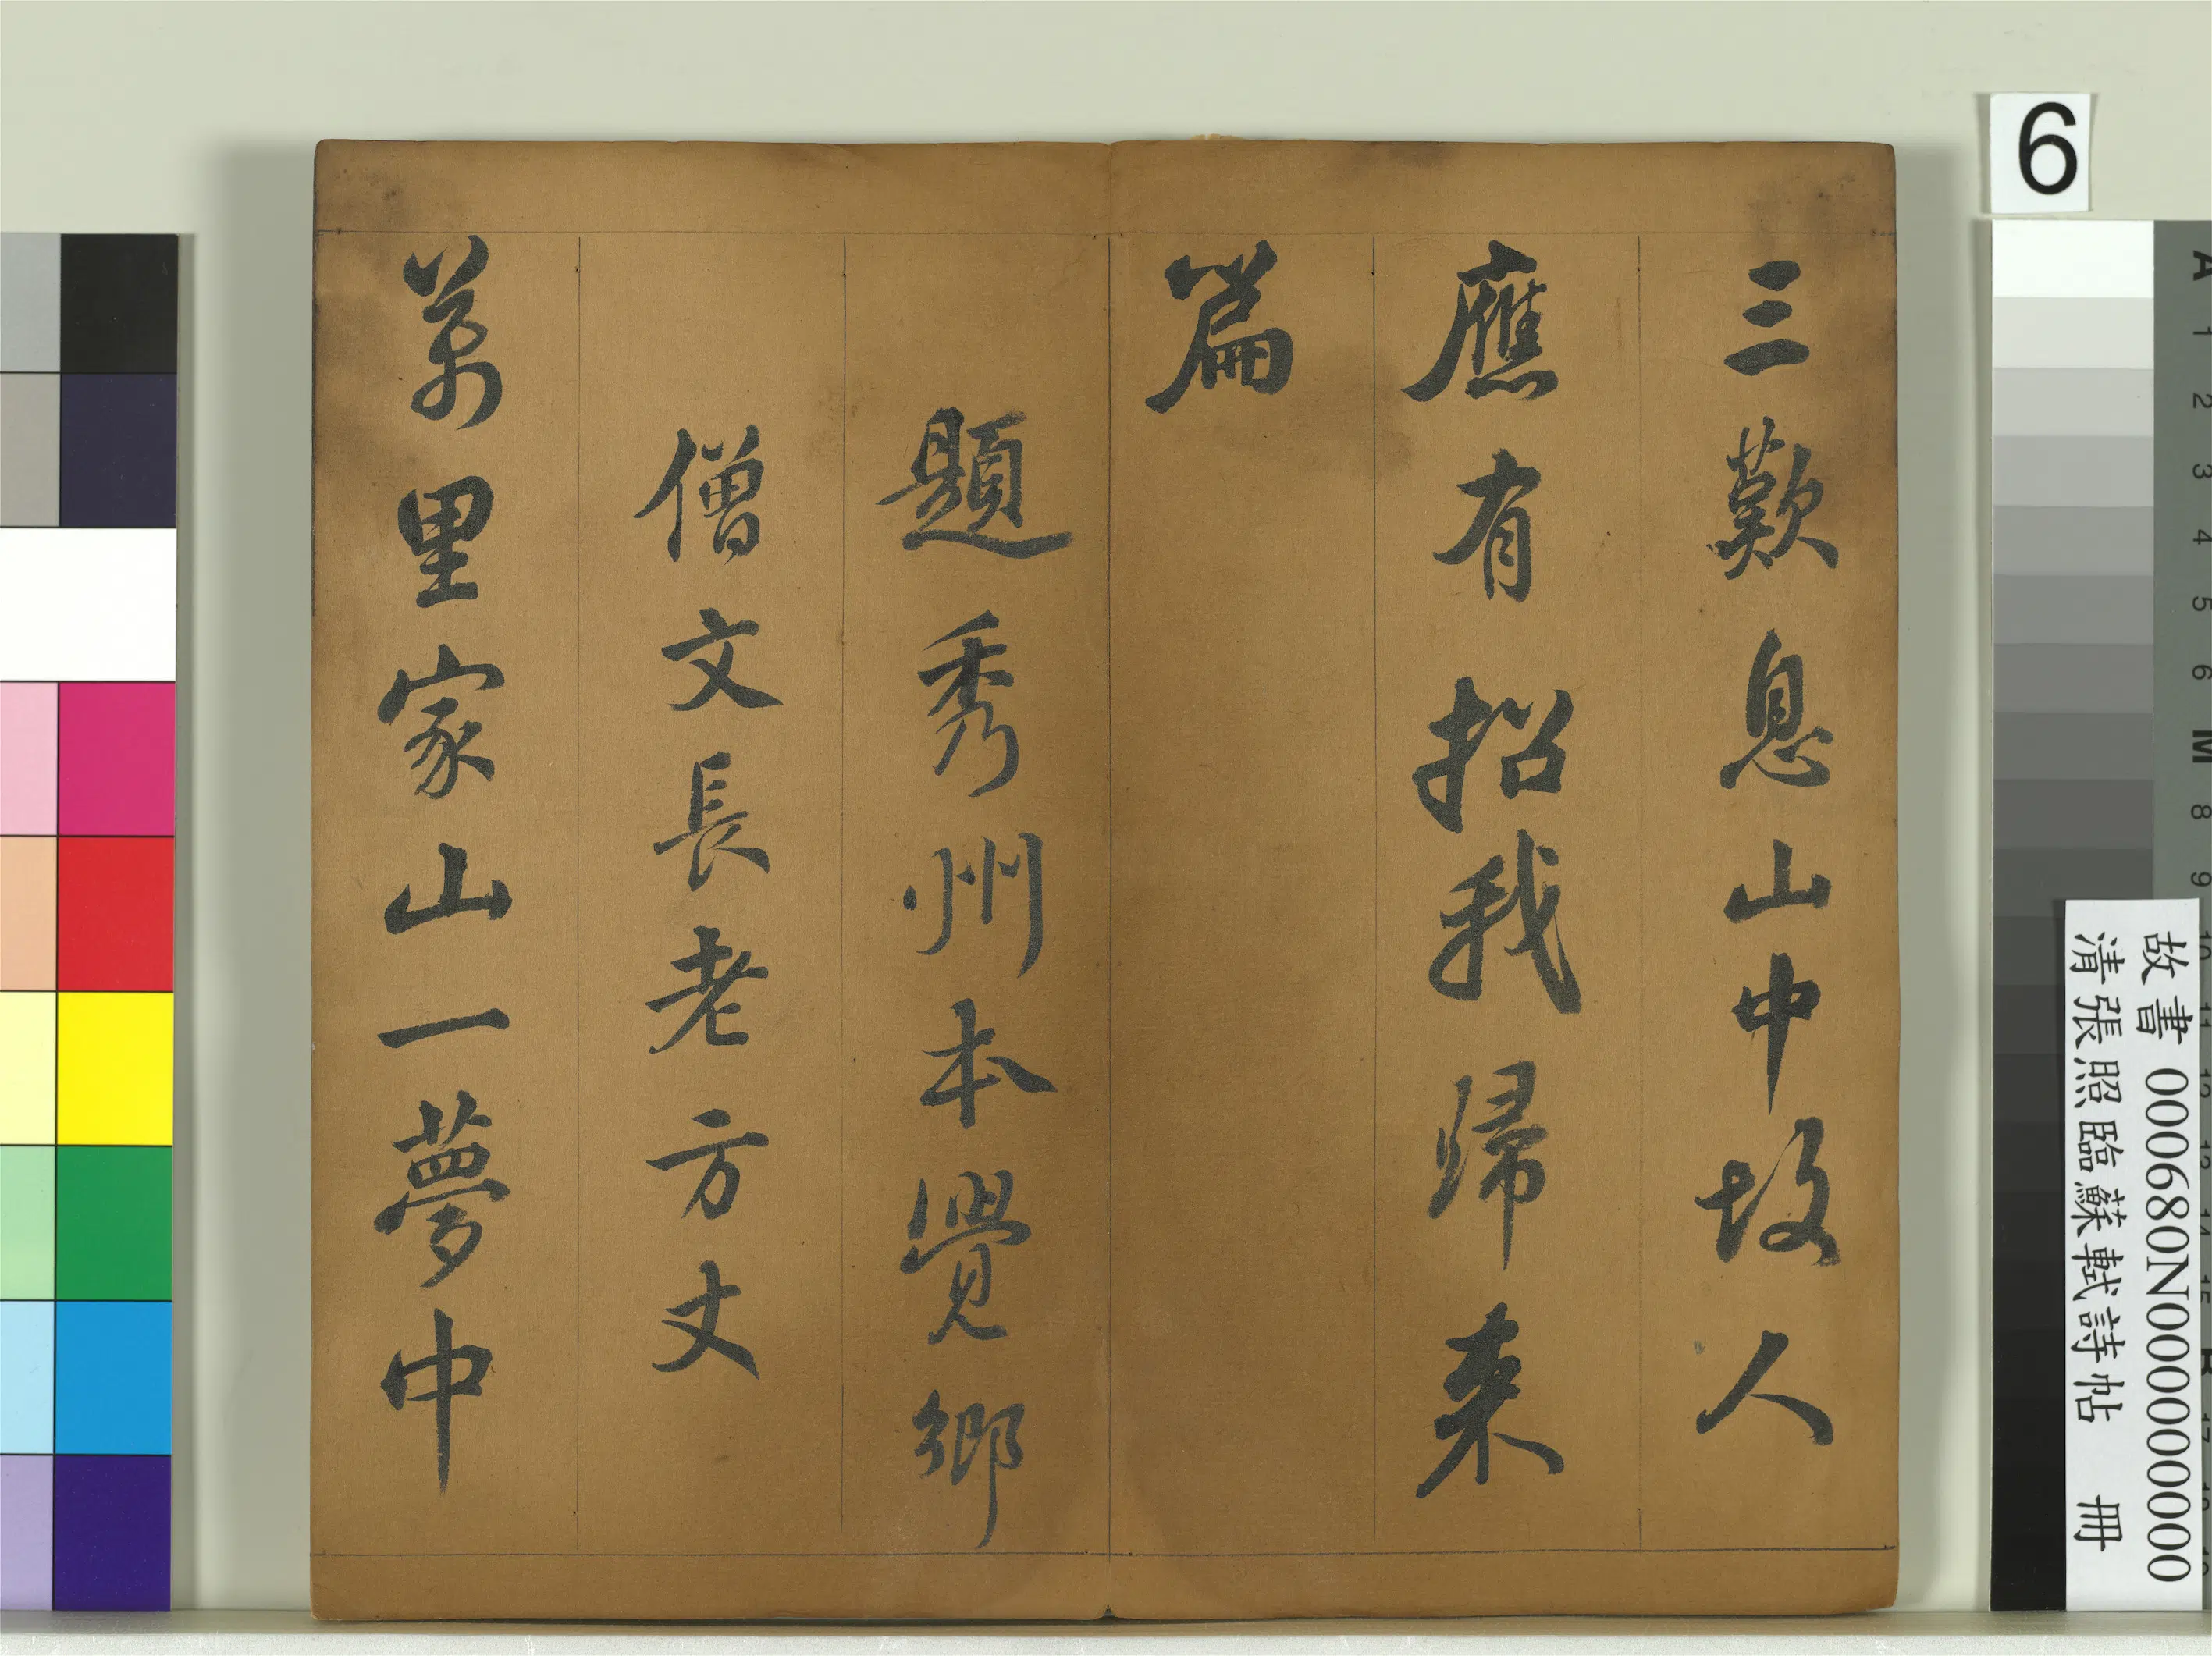 三歎息山中故人
應有招我歸来
篇
題秀州本覺鄉
僧文長老方丈
萬里家山一夢中
6
故書 000680N000000000
清張照臨蘇軾詩帖 冊
A
1
2
3
4
5
6
M
8
9
10
11
12
13
14
15
B
17
18
19